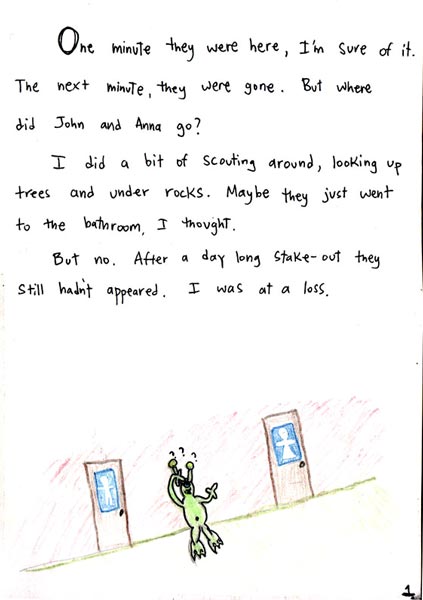 One minute they were here, I'm sure of it.
The next minute, they were gone. But where
did John and Anna go?
I did a bit of scouting around, looking up
trees and under rocks. Maybe they just went
to the bathroom, I thought.
But no. After a day long stake-out they
still hadn't appeared. I was at a loss.
? ? ?
1